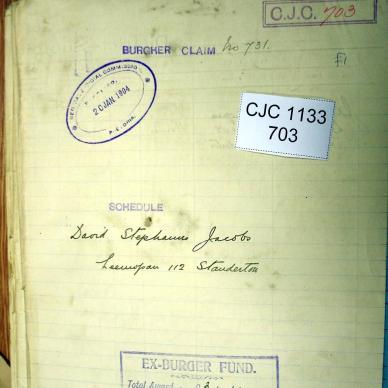 C.J.C. 703
BURGHER CLAIM No 731.
F1
20 JAN. 1904
CJC 1133
703
SCHEDULE
David Stephanus Jacobs
112 Standerton
EX-BURGER FUND.
Total Award